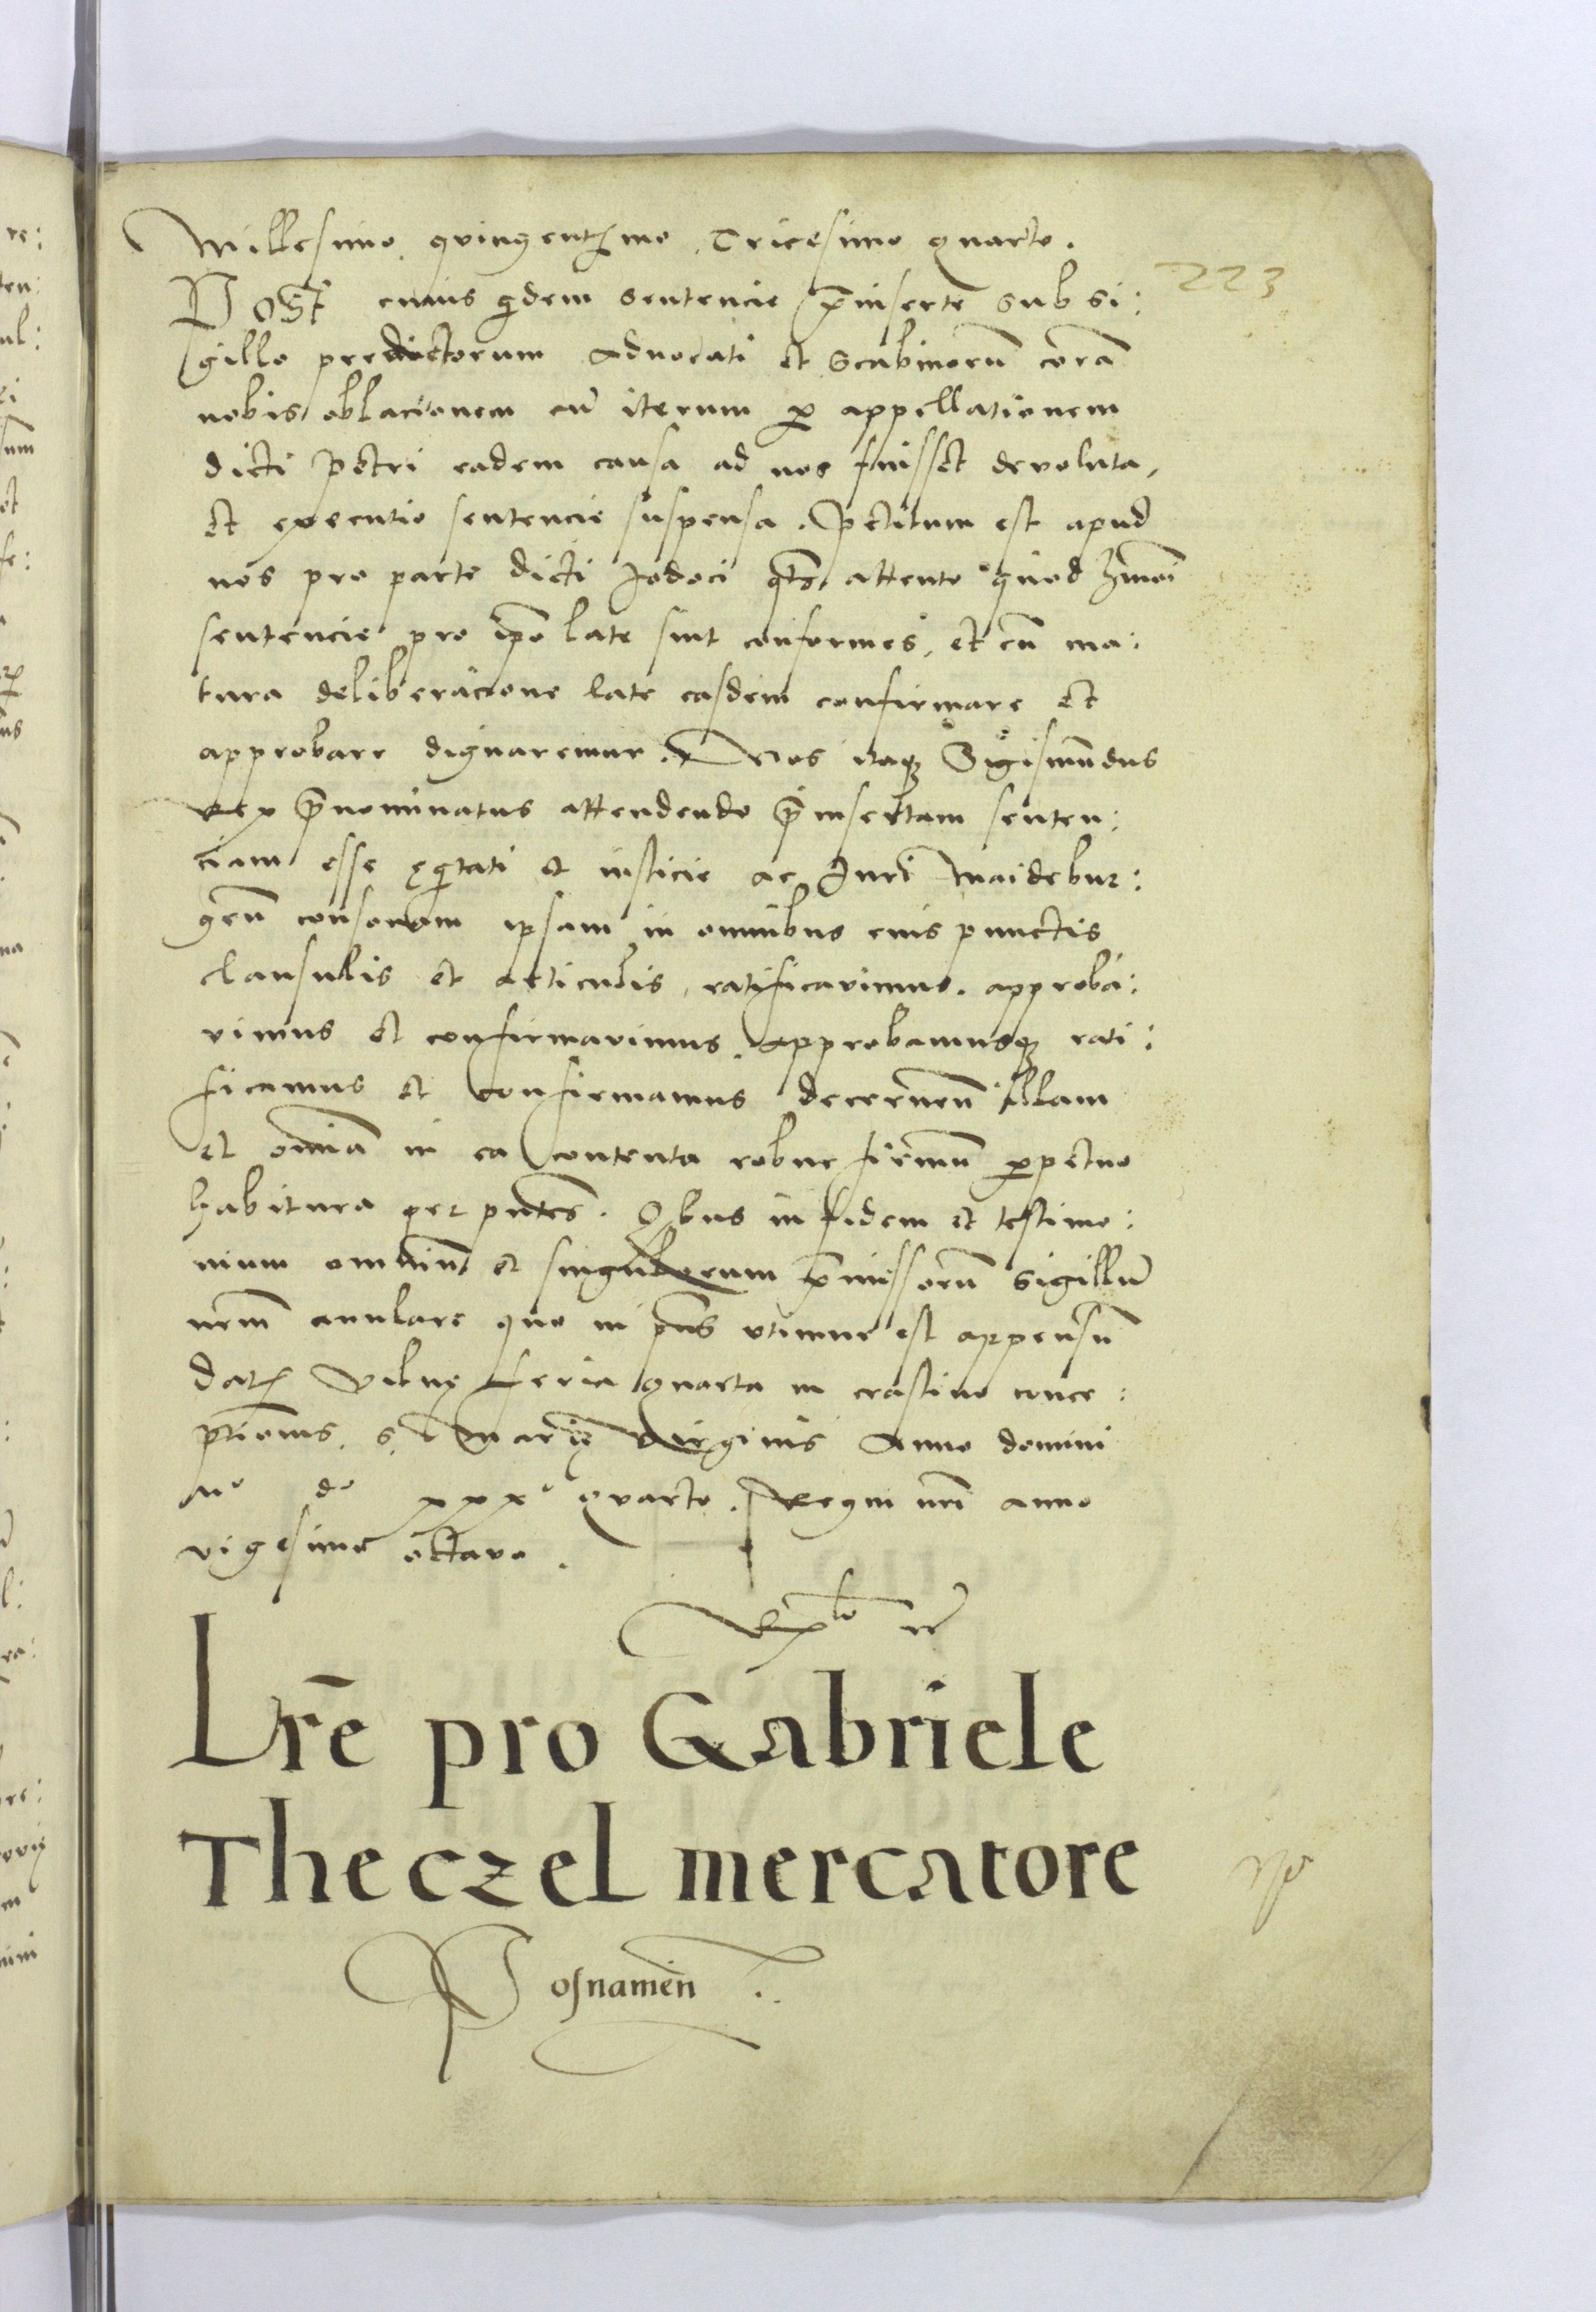 Millesimo quingentesimo Tricesimo quarto.
223
Post cuius quidem sentencie p̄inserte sub si:
gillo predictorum Aduocati et Scabinorū corā
nobis oblacionem cū iterum per appellationem
dicti Petri eadem causa ad nos fuisset devoluta,
et executio sentencie suspensa. Petitum est apud
nos pro parte dicti Jodoci qtṡ attento quod hmōi
sentencie pro ip̄o late sint conformes, et cū ma:
tura deliberacione late easdem confirmare et
approbare dignaremur. Nos itaq; Sigismūdus
rex p̄nominatus attendendo p̄insertam senten:
ciam esse ęqitati et iusticie ac Juri Maidebur:
geń consonam ipsam in omnibus eius punctis
clausulis et articulis, ratificavimus. approba:
vimus et confirmavimus. Approbamusq; rati:
ficamus et confirmamus decernēn illam
et om̄ia in ea contenta robur firmū perpetuo
habitura per pn̄tes. Qibus in fidem et testimo:
nium omnium et singulorum p̄missorū sigillū
nr̄m annulare quo in pn̄s utimur est appensū
Dat Vilnę feria quarta in crastino conce:
ptionis s. Marię Virginis Anno domini
Mᵒ dᵒ xxxᵒ quarto. Regni nr̄i anno
vigesimo octavo.
Lrē pro Gabriele
Theczel mercatore
Posnamēn.